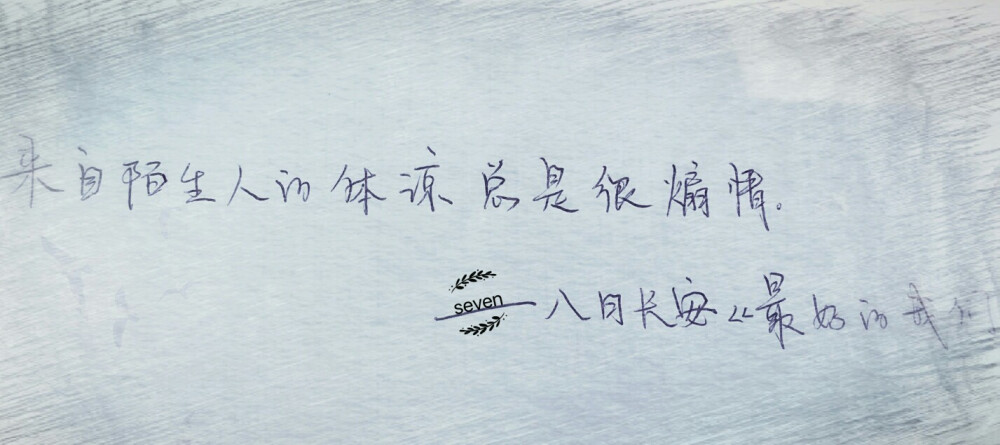 来自陌生人的体谅总是很煽情.
seven
——八月长安《最好的我们